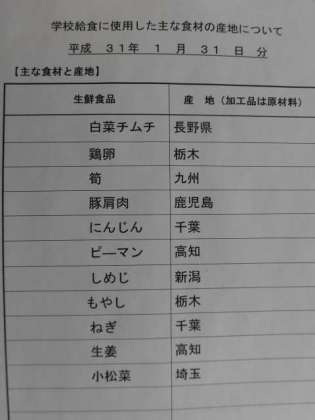 学校給食に使用した主な食材の産地について
平成 31年 1 月 31 日 分
【主な食材と産地】
生鮮食品 産 地（加工品は原材料）
白菜チムチ 長野県
鶏卵 栃木
筍 九州
豚肩肉 鹿児島
にんじん 千葉
ピーマン 高知
しめじ 新潟
もやし 栃木
ねぎ 千葉
生姜 高知
小松菜 埼玉